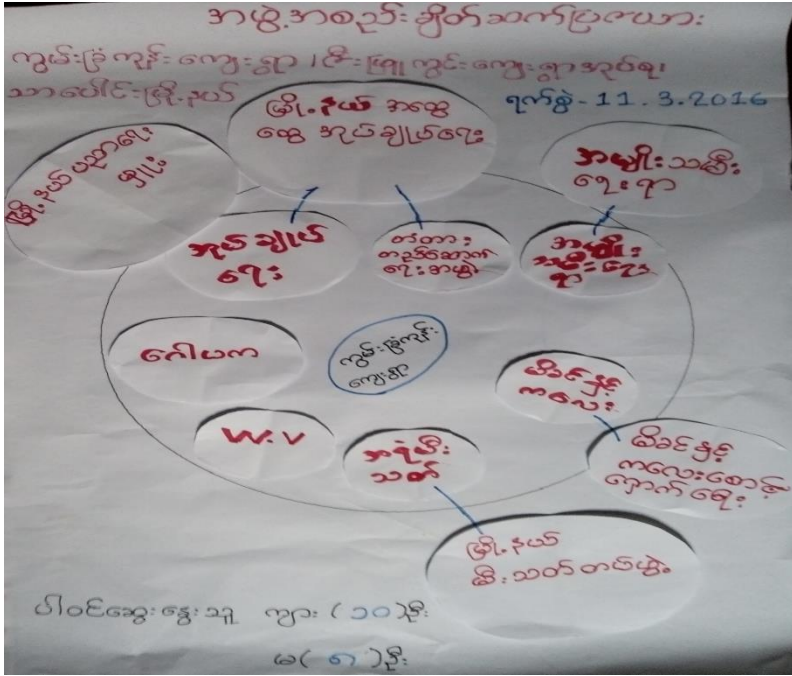 အဖွဲ့အစည်းချိတ်ဆက်ပြဇယား
ကွမ်းခြံကုန်းကျေးရွာ၊ ဇီးဖြူကွင်းကျေးရွာအုပ်စု၊
သာပေါင်းမြို့နယ်
ရက်စွဲ-11.3.2016
မြို့နယ် အထွေ
ထွေ အုပ်ချုပ်ရေး
မြို့နယ်ပညာရေး
မှူး
အမျိုးသမီး
ရေးရာ
အုပ်ချုပ်
ရေး
တံတား
တည်ဆောက်
ရေးအဖွဲ့
အမျိုး
သမီးရေး
ရာ
ဂေါပက
ကွမ်းခြံကုန်း
ကျေးရွာ
မိခင်နှင့်
ကလေး
W.V
အရံမီး
သတ်
မိခင်နှင့်
ကလေးစောင့်
ရှောက်ရေး
မြို့နယ်
မီးသတ်တပ်ဖွဲ့
ပါဝင်ဆွေးနွေးသူ ကျား (၁၀)ဦး
မ( ၈ )ဦး